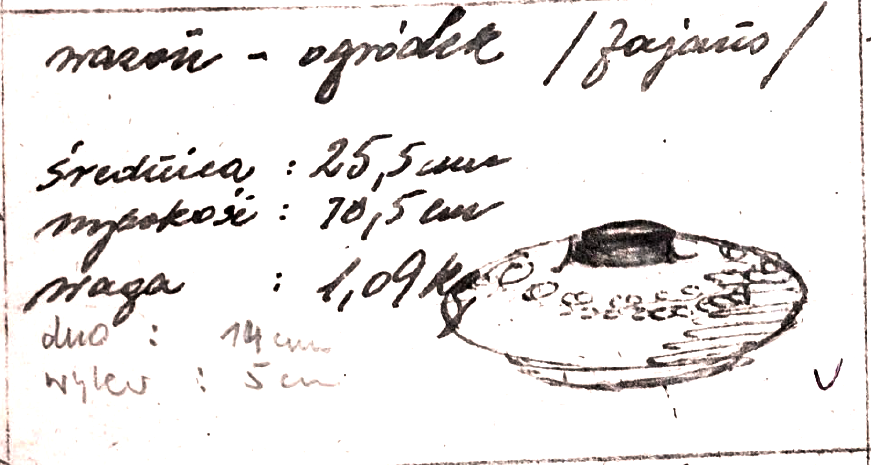 wazon - ogródek /fajans/
średnica : 25,5 cm
wysokość : 10,5 cm
waga : 1,09 kg
dno : 14 cm
wylew : 5 cm